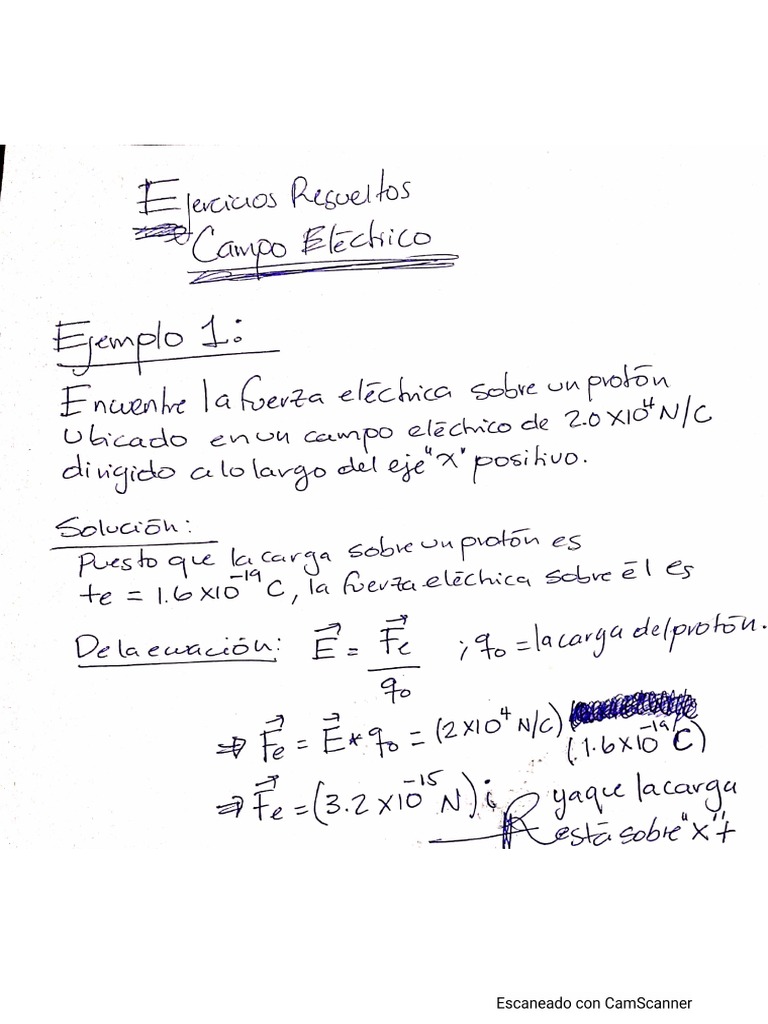 Ejercicios Resueltos
Campo Eléctrico
Ejemplo 1:
Encuentre la fuerza eléctrica sobre un protón
Ubicado en un campo eléctrico de 2.0 X10⁴ N/C
dirigido a lo largo del eje "X" positivo.
Solución:
Puesto que la carga sobre un protón es
+e = 1.6 X10⁻¹⁹ C, la fuerza eléctrica sobre él es
De la ecuación: E⃗ = F⃗e / q₀ ; q₀ = la carga del protón.
⇒ F⃗e = E⃗ * q₀ = (2X10⁴ N/C) (1.6X10⁻¹⁹ C)
⇒ F⃗e = (3.2 X10⁻¹⁵ N) i ya que la carga
R está sobre "X"+
Escaneado con CamScanner